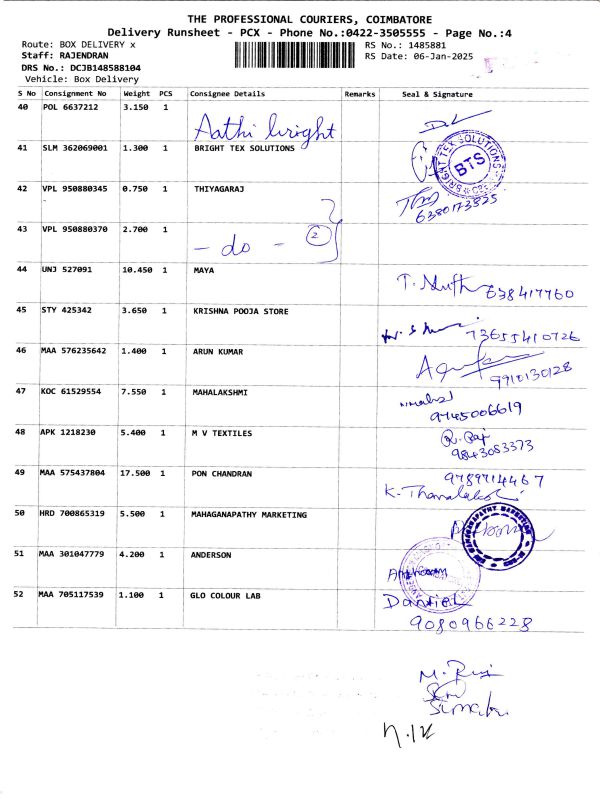 THE PROFESSIONAL COURIERS, COIMBATORE
Delivery Runsheet - PCX - Phone No.:0422-3505555 - Page No.:4
Route: BOX DELIVERY x
RS No.: 1485881
Staff: RAJENDRAN
RS Date: 06-Jan-2025
DRS No.: DCJB148588104
Vehicle: Box Delivery
S No Consignment No Weight PCS Consignee Details Remarks Seal & Signature
40 POL 6637212 3.150 1 Aathi bright
41 SLM 362069001 1.300 1 BRIGHT TEX SOLUTIONS
BRIGHT TEX SOLUTIONS
BTS
42 VPL 950880345 0.750 1 THIYAGARAJ
6380173825
43 VPL 950880370 2.700 1 - do - 2
44 UNJ 527091 10.450 1 MAYA
T. Muth 638417760
45 STY 425342 3.650 1 KRISHNA POOJA STORE
73655410726
46 MAA 576235642 1.400 1 ARUN KUMAR
9910130128
47 KOC 61529554 7.550 1 MAHALAKSHMI
9745006619
48 APK 1218230 5.400 1 M V TEXTILES
R. Raj
9843083373
49 MAA 575437804 17.500 1 PON CHANDRAN
9789714467
50 HRD 700865319 5.500 1 MAHAGANAPATHY MARKETING
MAHAGANAPATHY MARKETING
51 MAA 301047779 4.200 1 ANDERSON
52 MAA 705117539 1.100 1 GLO COLOUR LAB
Daniel
9080966228